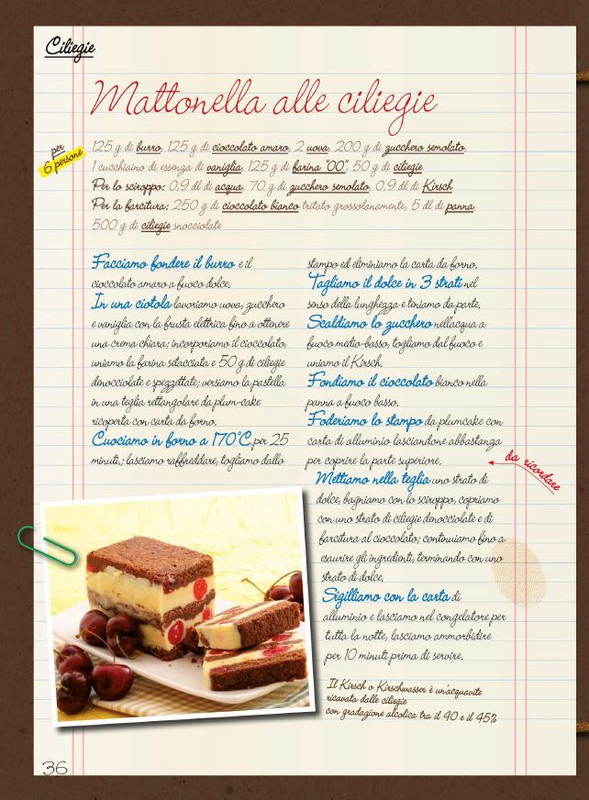 Ciliegie
Mattonella alle ciliegie
per
6 persone
125 g di burro, 125 g di cioccolato amaro, 2 uova, 200 g di zucchero semolato,
1 cucchiaino di essenza di vaniglia, 125 g di farina "00", 50 g di ciliegie
Per lo sciroppo: 0,9 dl di acqua, 70 g di zucchero semolato, 0,9 dl di Kirsch
Per la farcitura: 250 g di cioccolato bianco tritato grossolanamente, 5 dl di panna
500 g di ciliegie snocciolate
Facciamo fondere il burro e il
cioccolato amaro a fuoco dolce.
In una ciotola lavoriamo uova, zucchero
e vaniglia con la frusta elettrica fino a ottenere
una crema chiara; incorporiamo il cioccolato,
uniamo la farina setacciata e 50 g di ciliegie
denocciolate e spezzettate; versiamo la pastella
in una teglia rettangolare da plum-cake
ricoperta con carta da forno.
Cuociamo in forno a 170°C per 25
minuti; lasciamo raffreddare, togliamo dallo
stampo ed eliminiamo la carta da forno.
Tagliamo il dolce in 3 strati nel
senso della lunghezza e teniamo da parte.
Scaldiamo lo zucchero nell'acqua a
fuoco medio-basso, togliamo dal fuoco e
uniamo il Kirsch.
Fondiamo il cioccolato bianco nella
panna a fuoco basso.
Foderiamo lo stampo da plumcake con
carta di alluminio lasciandone abbastanza
per coprire la parte superiore.
da ricordare
Mettiamo nella teglia uno strato di
dolce, bagniamo con lo sciroppo, copriamo
con uno strato di ciliegie denocciolate e di
farcitura al cioccolato; continuiamo fino a
esaurire gli ingredienti, terminando con uno
strato di dolce.
Sigilliamo con la carta di
alluminio e lasciamo nel congelatore per
tutta la notte, lasciamo ammorbidire
per 10 minuti prima di servire.
Il Kirsch o Kirschwasser è un'acquavite
ricavata dalle ciliegie
con gradazione alcolica tra il 40 e il 45%
36